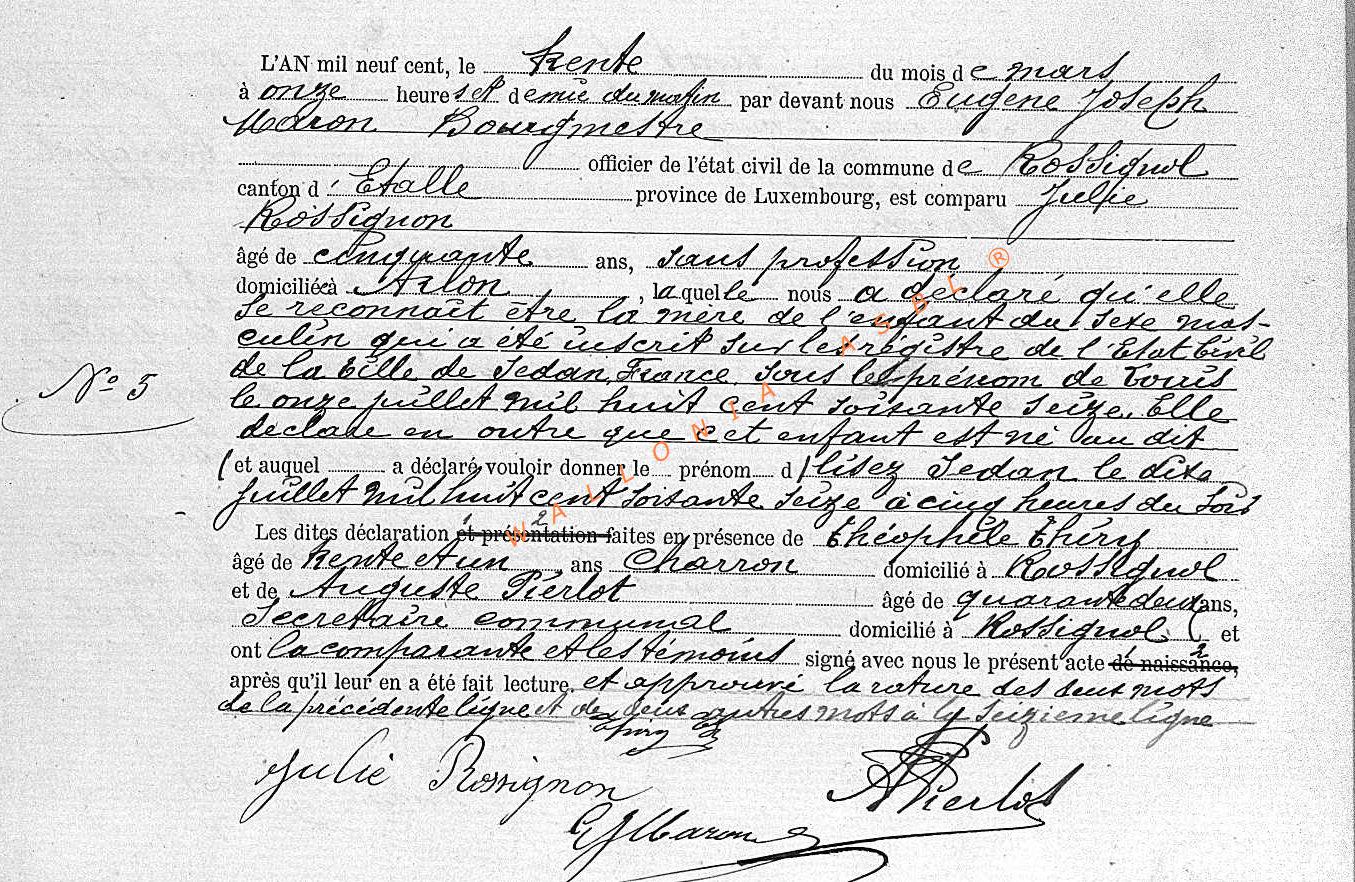 L'AN mil neuf cent, le trente du mois de mars
à onze heures et demie du matin par devant nous Eugène Joseph
Maron Bourgmestre
officier de l'état civil de la commune de Rossignol
canton d'Etalle province de Luxembourg, est comparu Julie
Rossignon
âgé de cinquante ans, sans profession
domiciliée à Arlon, laquelle nous a déclaré qu'elle
se reconnaît être la mère de l'enfant du sexe mas-
culin qui a été inscrit sur les régistre de l'Etat Civil
N° 5
de la Ville de Sedan, France, sous le prénom de Louis
le onze juillet mil huit cent soixante seize. Elle
déclare en outre que cet enfant est né au dit
(et auquel a déclaré vouloir donner le prénom d) lisez Sedan le dix
juillet mil huit cent soixante seize à cinq heures du soir
Les dites déclaration et présentation faites en présence de Théophile Thiry
âgé de trente et un ans Charron domicilié à Rossignol
et de Auguste Pierlot âgé de quarante deux ans,
Secrétaire communal domicilié à Rossignol et
ont la comparante et les témoins signé avec nous le présent acte de naissance,
après qu'il leur en a été fait lecture. et approuvé la rature des deux mots
de la précédente ligne et de deux autres mots à la seizième ligne
Thiry
Julie Rossignon
APierlot
EJMaron
WALLONIA ASBL ®